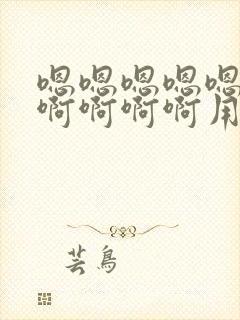 嗯嗯嗯嗯嗯
啊啊啊啊用
芸鸟